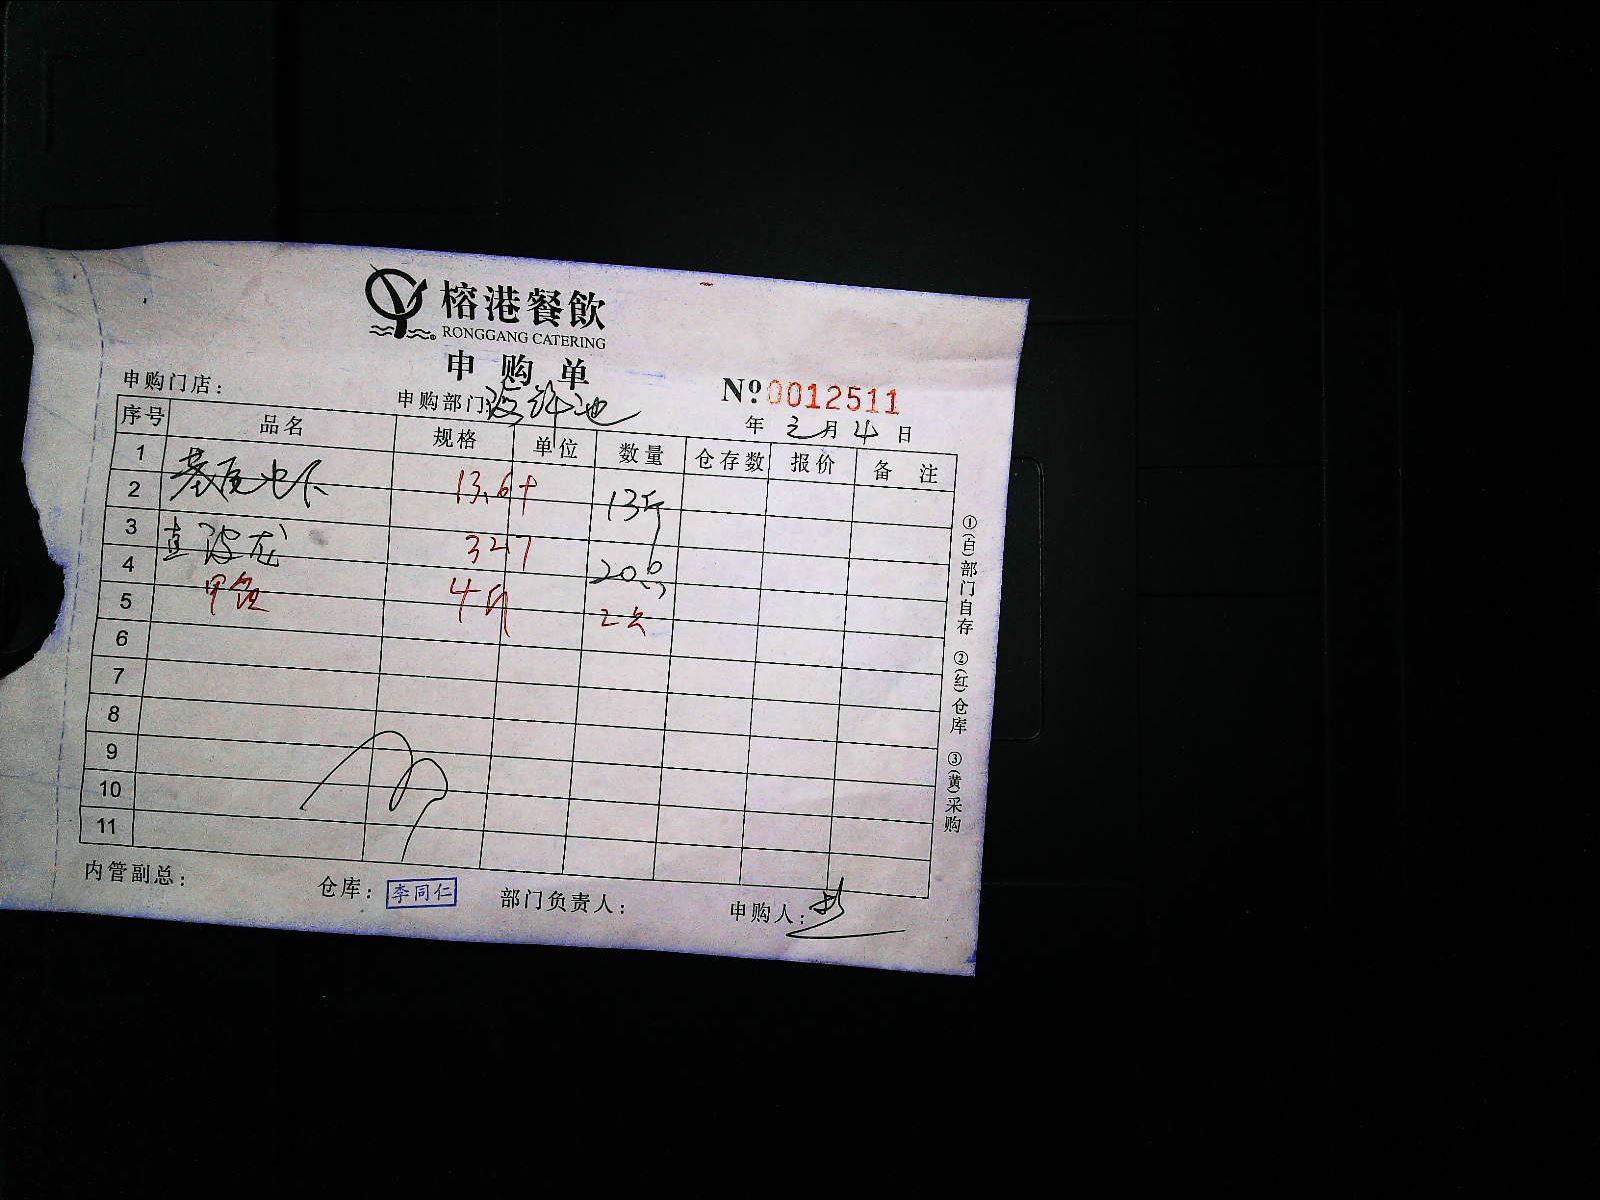 榕港餐飲
RONGGANG CATERING
申购单
申购门店：
申购部门：海鲜池
Nº 0012511
年 2 月 4 日
序号 品名 规格 单位 数量 仓存数 报价 备注
1
2 基尾 13.6斤 13斤
3
4 波龙 20
5 甲鱼 4斤 2只
6
7
8
9
10
11
①(白)部门自存 ②(红)仓库 ③(黄)采购
内管副总： 仓库：李同仁 部门负责人： 申购人：